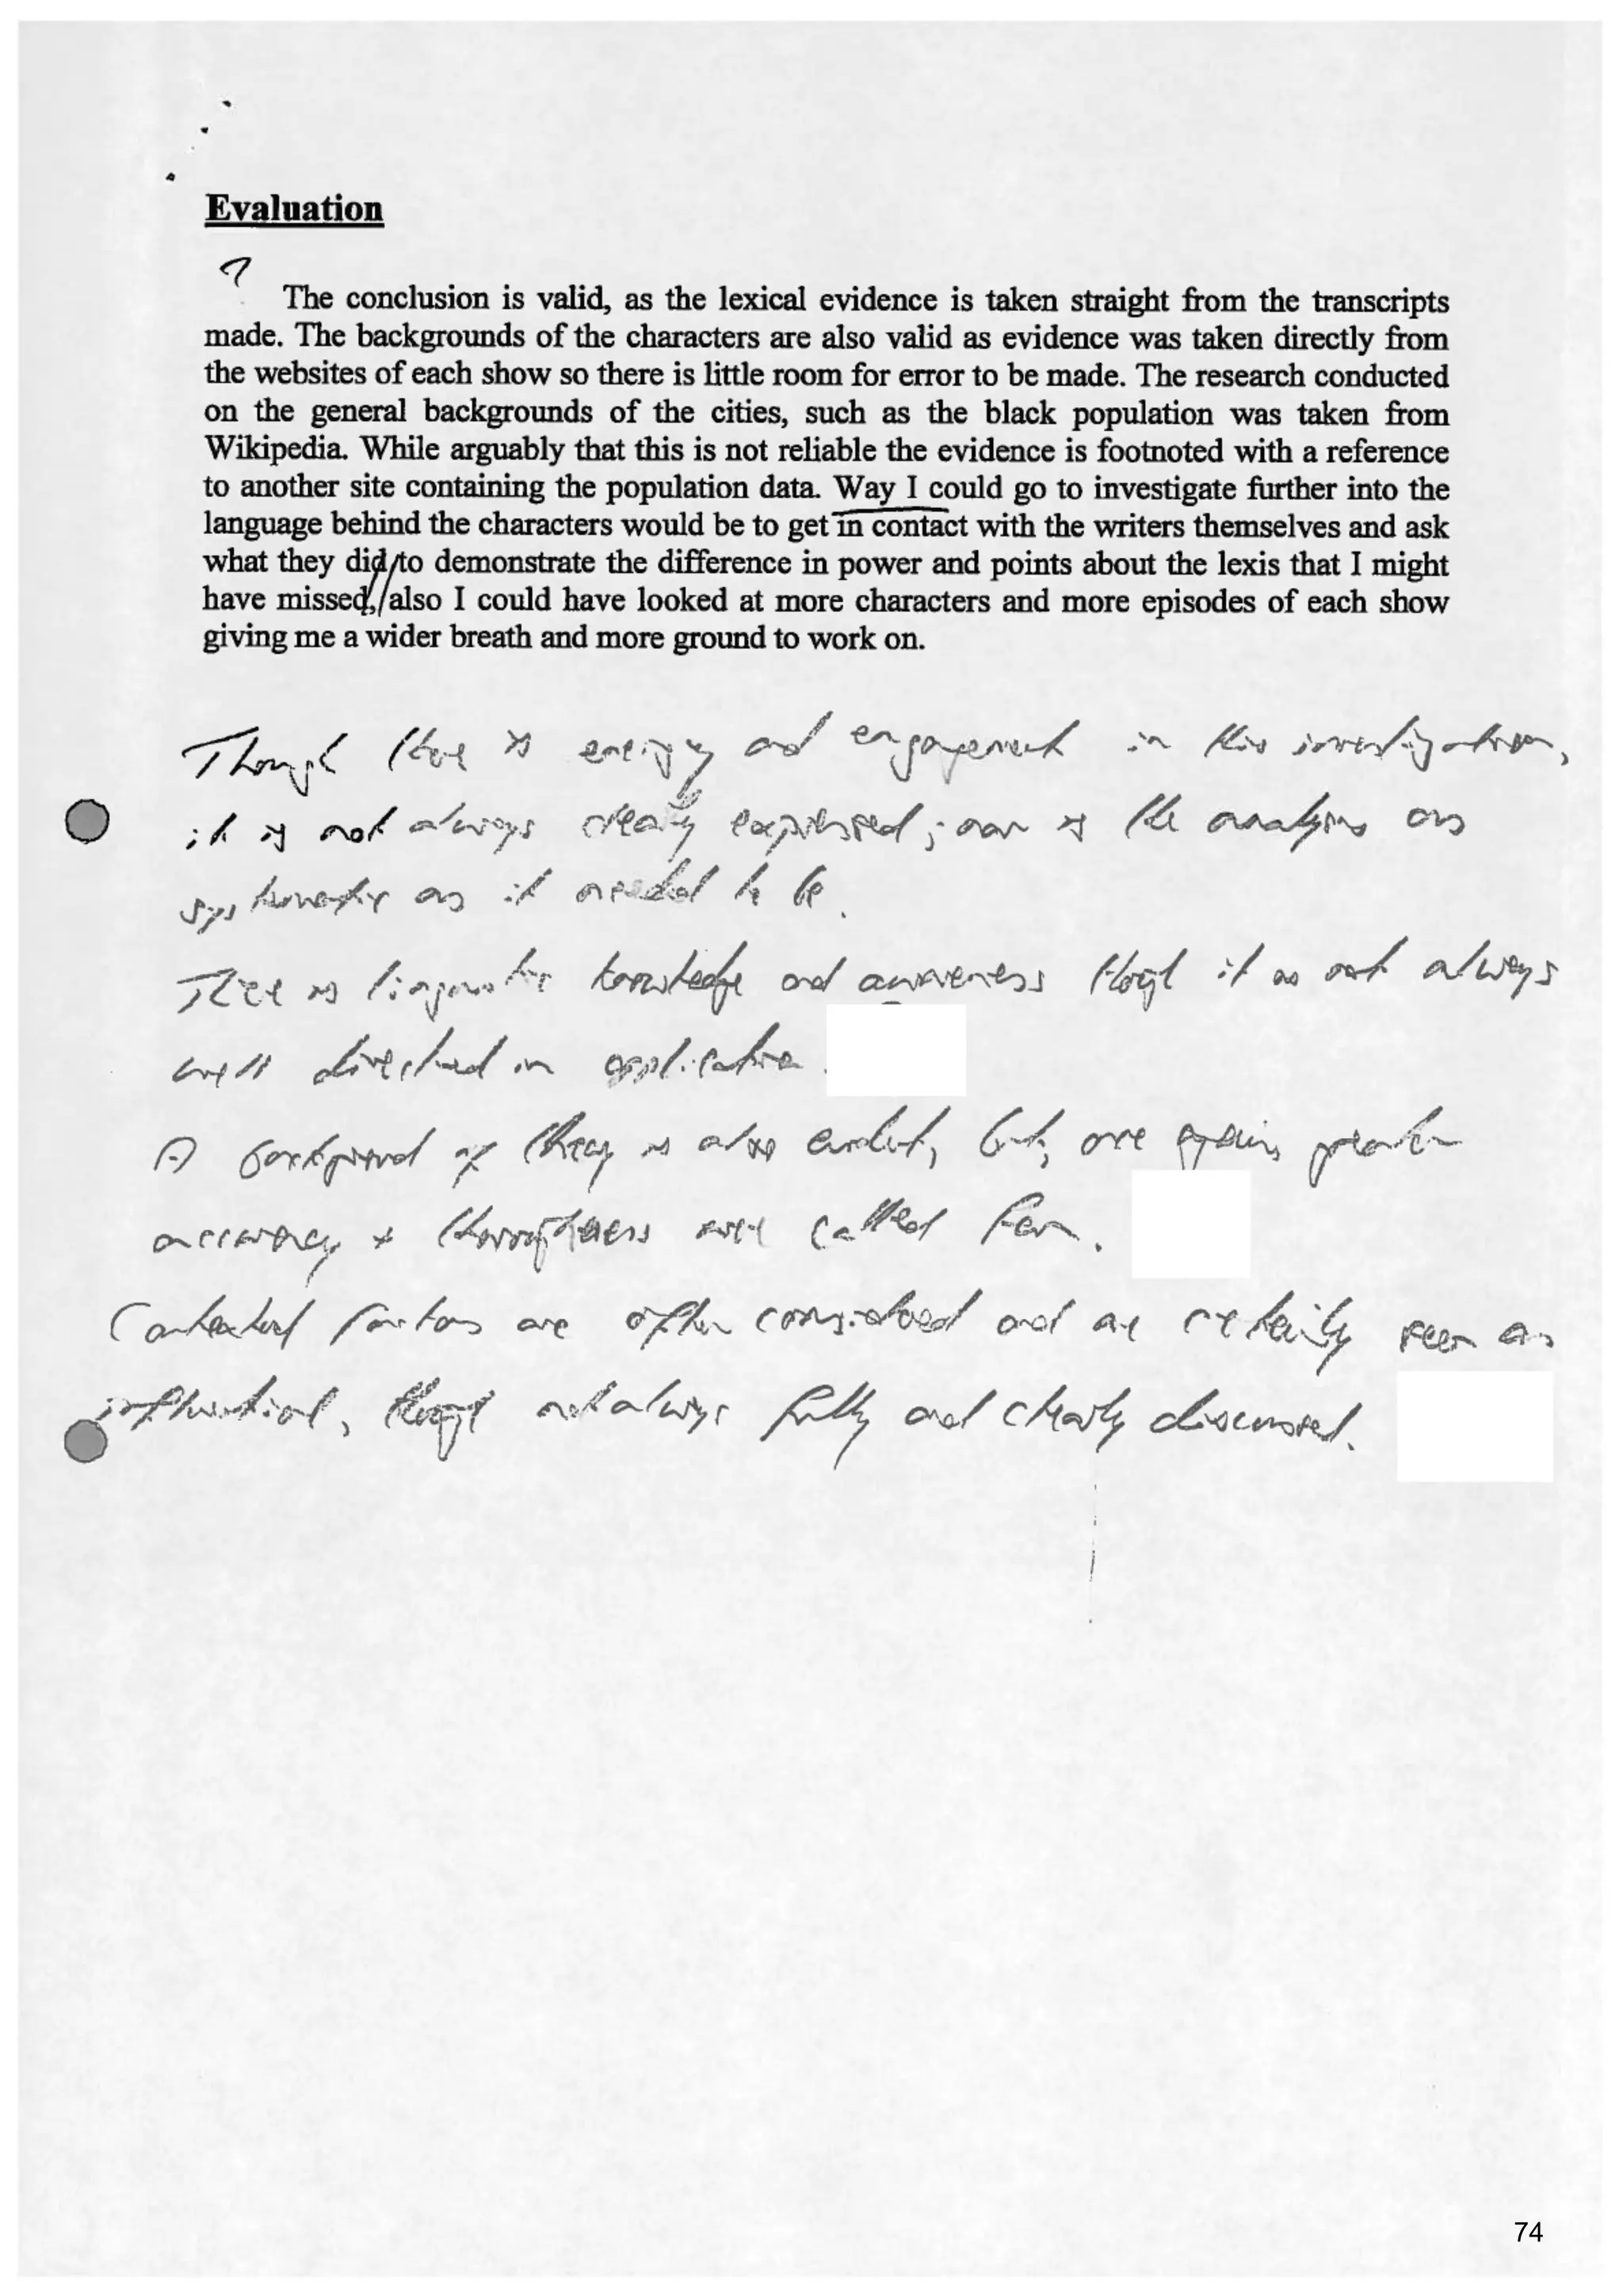 Evaluation
?
The conclusion is valid, as the lexical evidence is taken straight from the transcripts
made. The backgrounds of the characters are also valid as evidence was taken directly from
the websites of each show so there is little room for error to be made. The research conducted
on the general backgrounds of the cities, such as the black population was taken from
Wikipedia. While arguably that this is not reliable the evidence is footnoted with a reference
to another site containing the population data. Way I could go to investigate further into the
language behind the characters would be to get in contact with the writers themselves and ask
what they did/to demonstrate the difference in power and points about the lexis that I might
have missed,/also I could have looked at more characters and more episodes of each show
giving me a wider breath and more ground to work on.
Though there is energy and engagement in this investigation,
it is not always clearly expressed; nor is the analysis as
systematic as it needed to be.
There is linguistic knowledge and awareness though it is not always
well directed in application.
A background of theory is also evident, but, once again, greater
accuracy + thoroughness were called for.
Contextual factors are often considered and are certainly seen as
influential, though not always fully and clearly discussed.
74